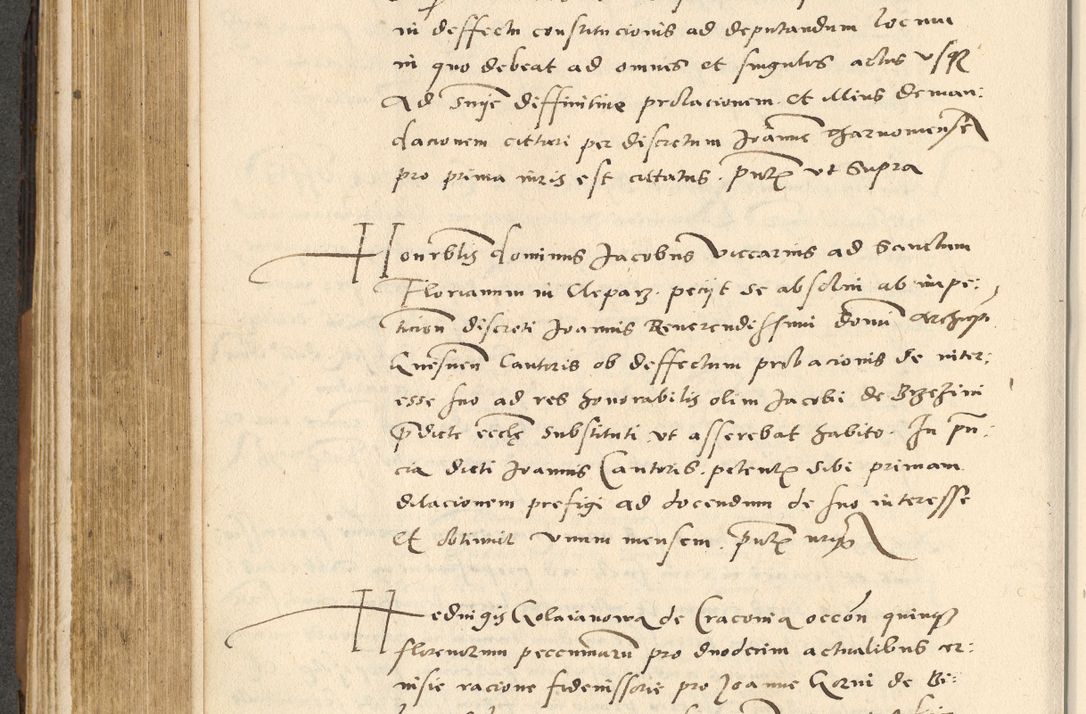 in deffectu constitucionis ad deputandum locum
in quo debeat ad omnes et singulos actus usq
Ad snie diffinitive prolacionem et illius deman:
dacionem cittari per discretum Joanne Tharnoviense
pro prima iuris est citatus . pntr ut supra
Honrblis dominus Jacobus viccarius ad Sanctum
Florianum in Cleparz . petyt se absolvi ab impe:
ticion discreti Joannis Reverendissimi domi Archiepi
Gnesnen Cantoris ob deffectum probacionis de inter:
esse suo ad res honorabilis olim Jacobi de Brzezini
pdicte eccle substituti ut asserebat habito . In pn:
cia dicti Joannis Cantoris . petentr sibi primam
dilacionem prefigi ad docendum de suo interesse
et obtinuit unum mensem . pntr
Hedvigis Kolaianowa de Cracovia occon quinq
florenorum peccuniaru pro duodecim actualibus cer:
visie racione fideiussorie pro Joanne Gorni de Bi: